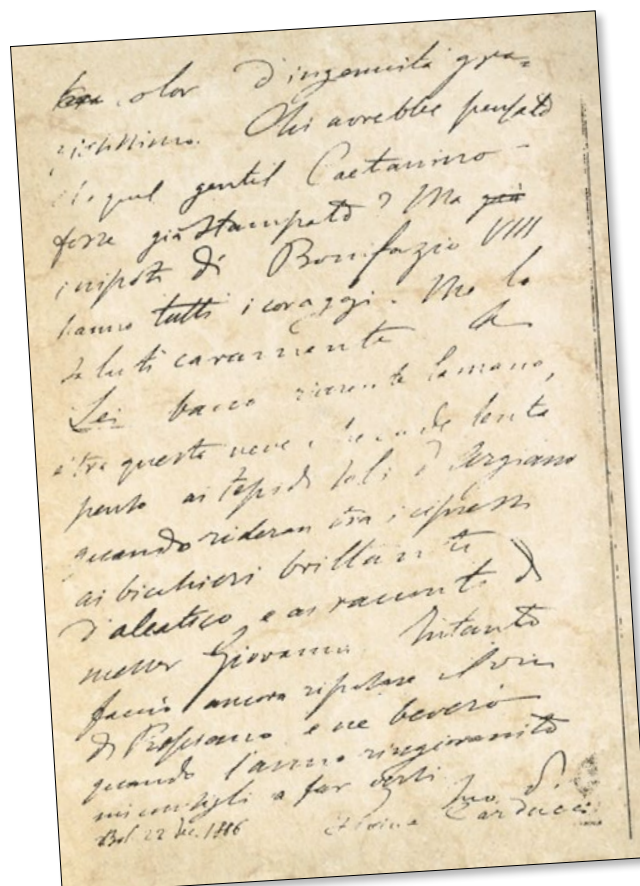 color d'ingenuità gra-
ziosissimo. Chi avrebbe pensato
quel gentil Caetanino
forse già stampato? Ma già
i nipoti di Bonifazio VIII
hanno tutti i coraggi. Me lo
saluti caramente. A
Lei bacio la mano,
e tra questa neve che cade lenta
penso ai tepidi soli d'
quando rideran tra i cipressi
ai bicchieri brillanti
d'aleatico e ai racconti di
messer Giovanni. Intanto
faccio ancora riposare il vin
di e ne beverò
quando l'anno ringiovanito
mi consigli a far versi.
Suo d.
Bol. 22 dic. 1886 Carducci